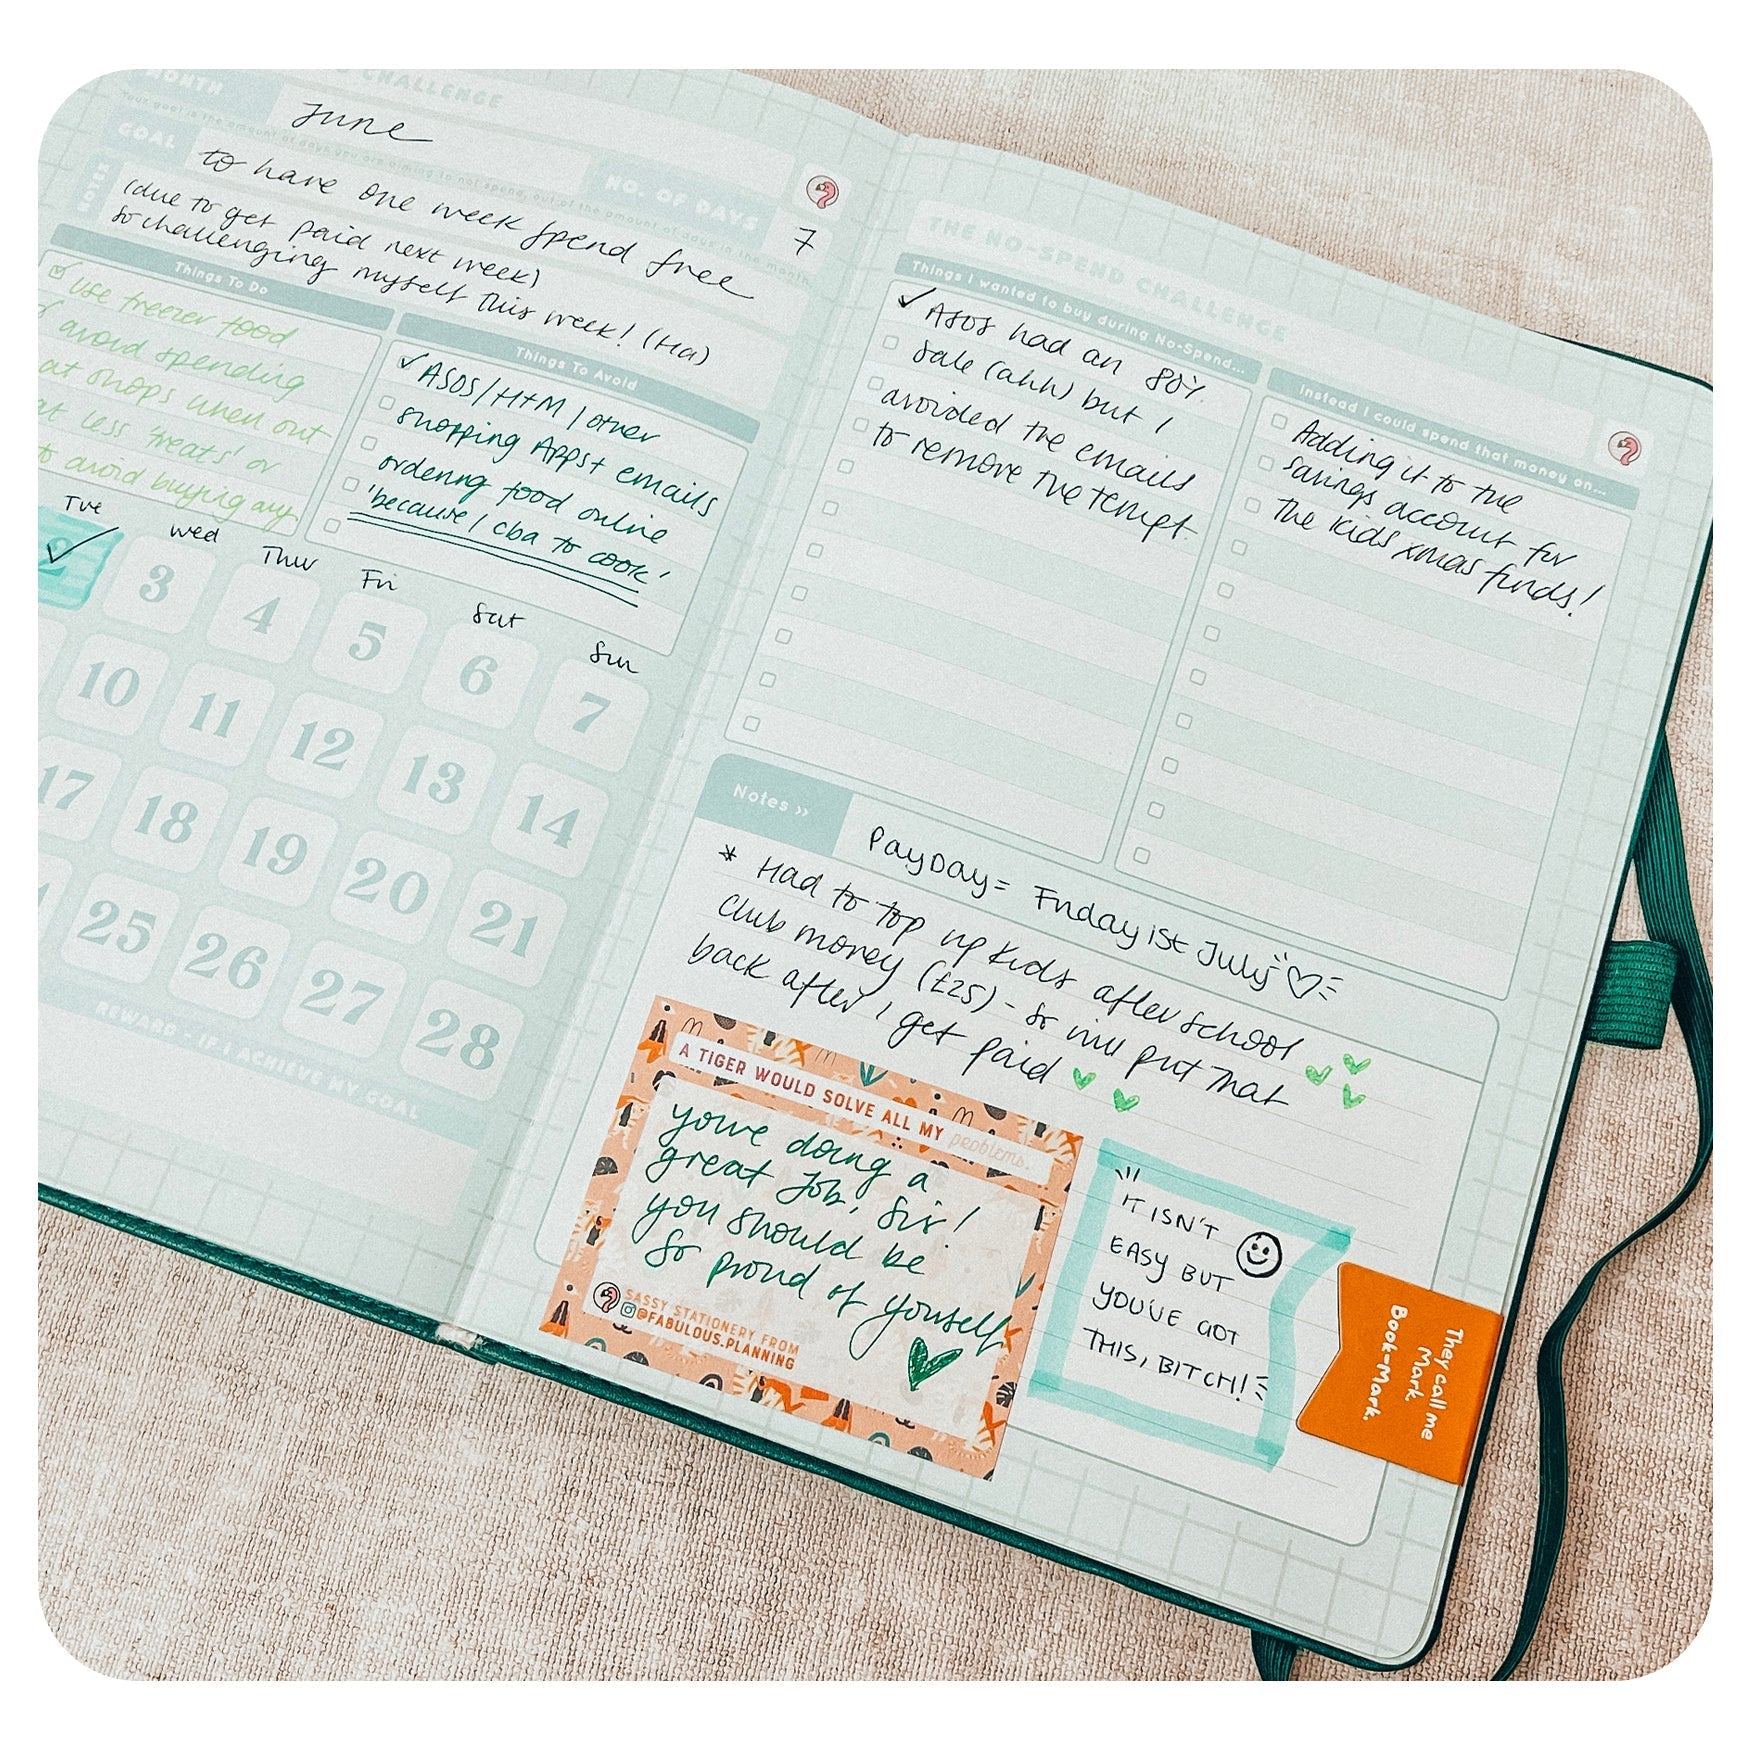 CHALLENGE
MONTH
June
GOAL
to have one week spend free
NO. OF DAYS
7
(due to get paid next week)
so challenging myself this week! (Ha)
Things To Do
use freezer food
avoid spending
at shops when out
at less 'treats' or
to avoid buying any
Things To Avoid
ASOS/H+M/other
shopping Apps + emails
ordering food online
'because I cba to cook'
Tue
Wed
Thur
Fri
Sat
Sun
2 3 4 5 6 7
10 11 12 13 14
17 18 19 20 21
25 26 27 28
REWARD - IF I ACHIEVE MY GOAL
THE NO SPEND CHALLENGE
Things I wanted to buy during No-Spend...
ASOS had an 80%
sale (ahh) but I
avoided the emails
to remove the tempt.
Instead I could spend that money on...
Adding it to the
savings account for
the kids xmas funds!
Notes >>
PayDay = Friday 1st July
* Had to top up kids after school
club money (£25) - so will put that
back after I get paid
A TIGER WOULD SOLVE ALL MY problems.
youre doing a
great job, sis!
you should be
so proud of yourself
SASSY STATIONERY FROM
@FABULOUS.PLANNING
IT ISN'T
EASY BUT
YOU'VE GOT
THIS, BITCH!
They call me
Mark.
Book-Mark.